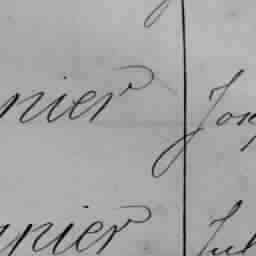 nier Jos
nier Jul